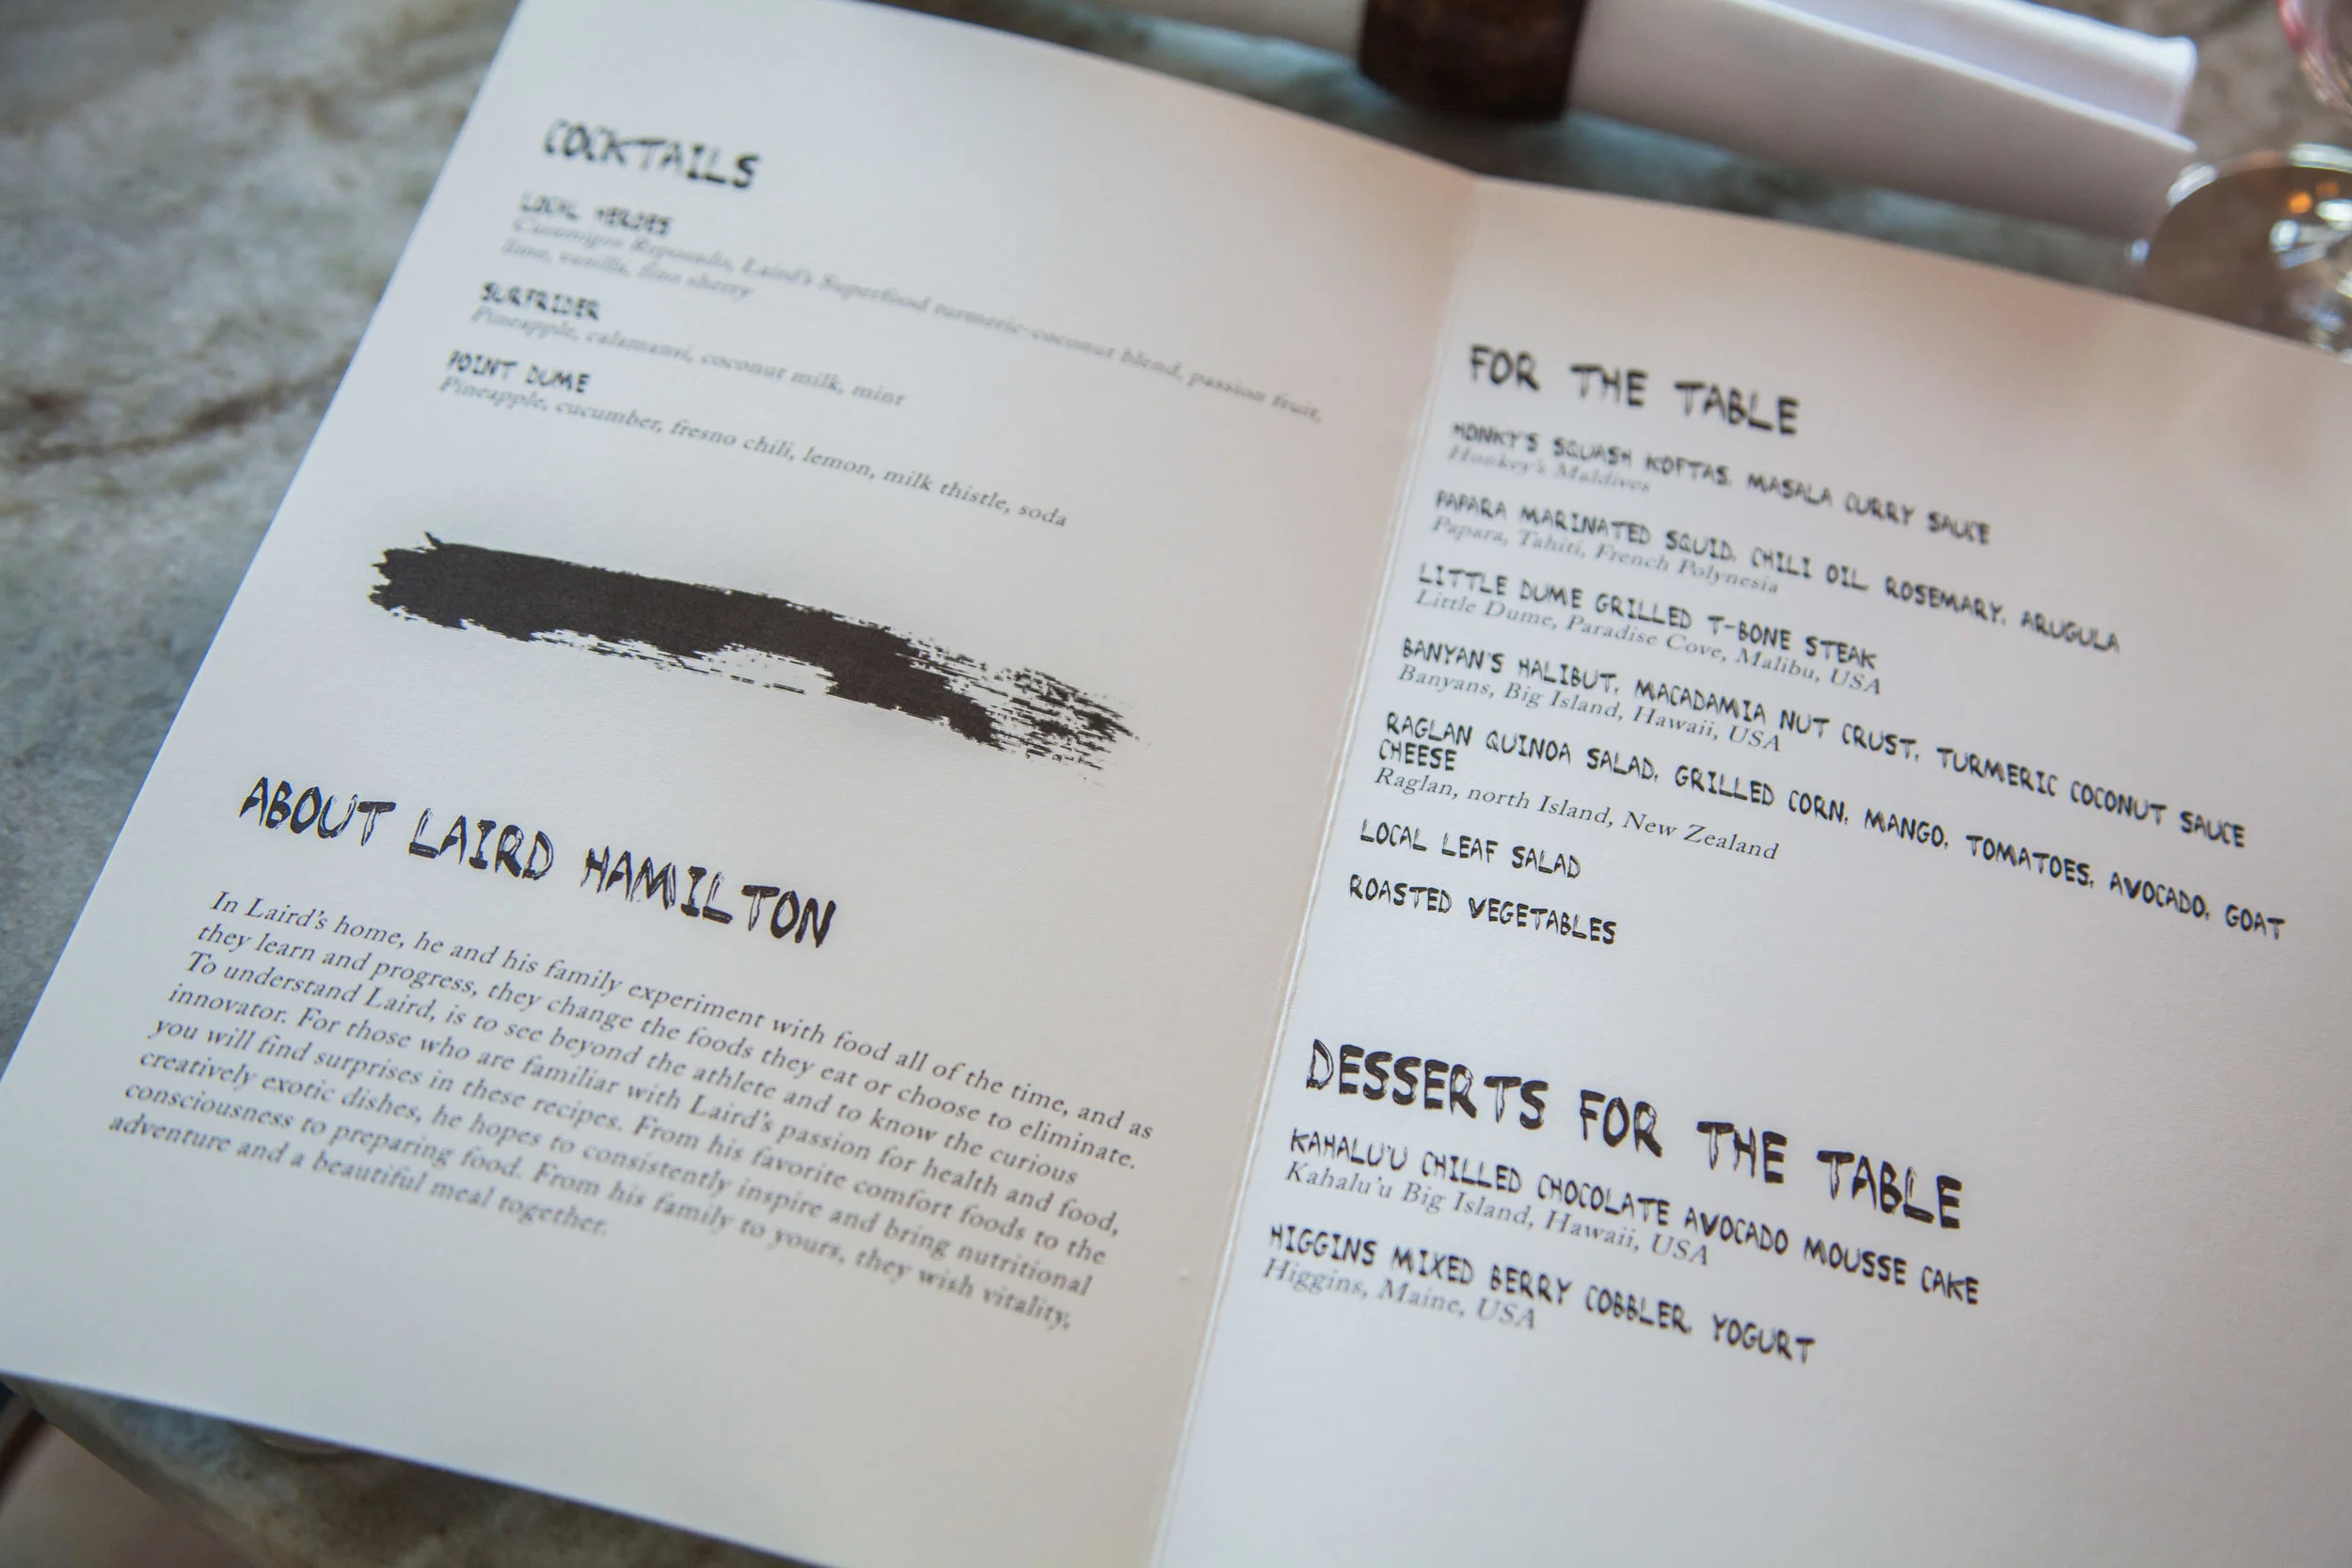 COCKTAILS
LOCAL HEROES
Casamigos Reposado, Laird's Superfood turmeric-coconut blend, passion fruit,
lime, vanilla, fino sherry
SURFRIDER
Pineapple, calamansi, coconut milk, mint
POINT DUME
Pineapple, cucumber, fresno chili, lemon, milk thistle, soda
ABOUT LAIRD HAMILTON
In Laird's home, he and his family experiment with food all of the time, and as
they learn and progress, they change the foods they eat or choose to eliminate.
To understand Laird, is to see beyond the athlete and to know the curious
innovator. For those who are familiar with Laird's passion for health and food,
you will find surprises in these recipes. From his favorite comfort foods to the
creatively exotic dishes, he hopes to consistently inspire and bring nutritional
consciousness to preparing food. From his family to yours, they wish vitality,
adventure and a beautiful meal together.
FOR THE TABLE
HONKY'S SQUASH KOFTAS, MASALA CURRY SAUCE
Honkey's Maldives
PAPARA MARINATED SQUID, CHILI OIL, ROSEMARY, ARUGULA
Papara, Tahiti, French Polynesia
LITTLE DUME GRILLED T-BONE STEAK
Little Dume, Paradise Cove, Malibu, USA
BANYAN'S HALIBUT, MACADAMIA NUT CRUST, TURMERIC COCONUT SAUCE
Banyans, Big Island, Hawaii, USA
RAGLAN QUINOA SALAD, GRILLED CORN, MANGO, TOMATOES, AVOCADO, GOAT
CHEESE
Raglan, north Island, New Zealand
LOCAL LEAF SALAD
ROASTED VEGETABLES
DESSERTS FOR THE TABLE
KAHALU'U CHILLED CHOCOLATE AVOCADO MOUSSE CAKE
Kahalu'u Big Island, Hawaii, USA
HIGGINS MIXED BERRY COBBLER, YOGURT
Higgins, Maine, USA